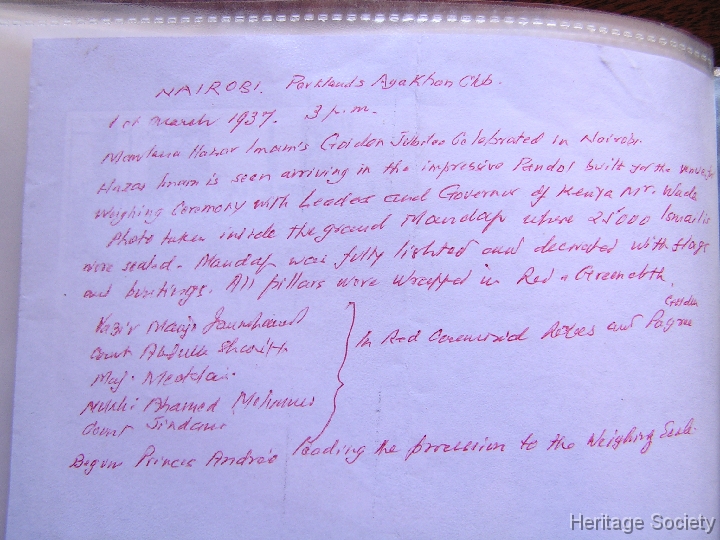 NAIROBI. Parklands Aga Khan Club.
1st March 1937. 3 p.m.
Mowlana Hazar Imam's Golden Jubilee Celebrated in Nairobi.
Hazar Imam is seen arriving in the impressive Pandol built for the venue for
Weighing Ceremony with Leaders and Governor of Kenya Mr. Wade
Photo taken inside the grand Mandap where 25'000 Ismailis
were seated. Mandap was fully lighted and decorated with flags
and buntings. All pillars were wrapped in Red & Green cloth
Vazir
Count Abdulla Shariff
Maj.
Mukhi Ahamed
Count Jindani
In Red Ceremonial Robes and Golden Pagree
Begum Princes Andrée leading the procession to the Weighing Scale
Heritage Society